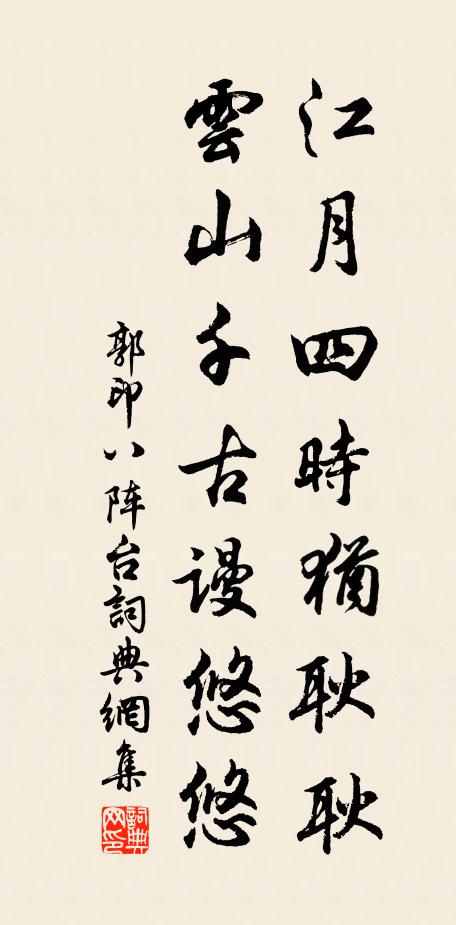 江月四時猶耿耿
雲山千古謾悠悠
郭印八阵台詞典網集
詞典网印